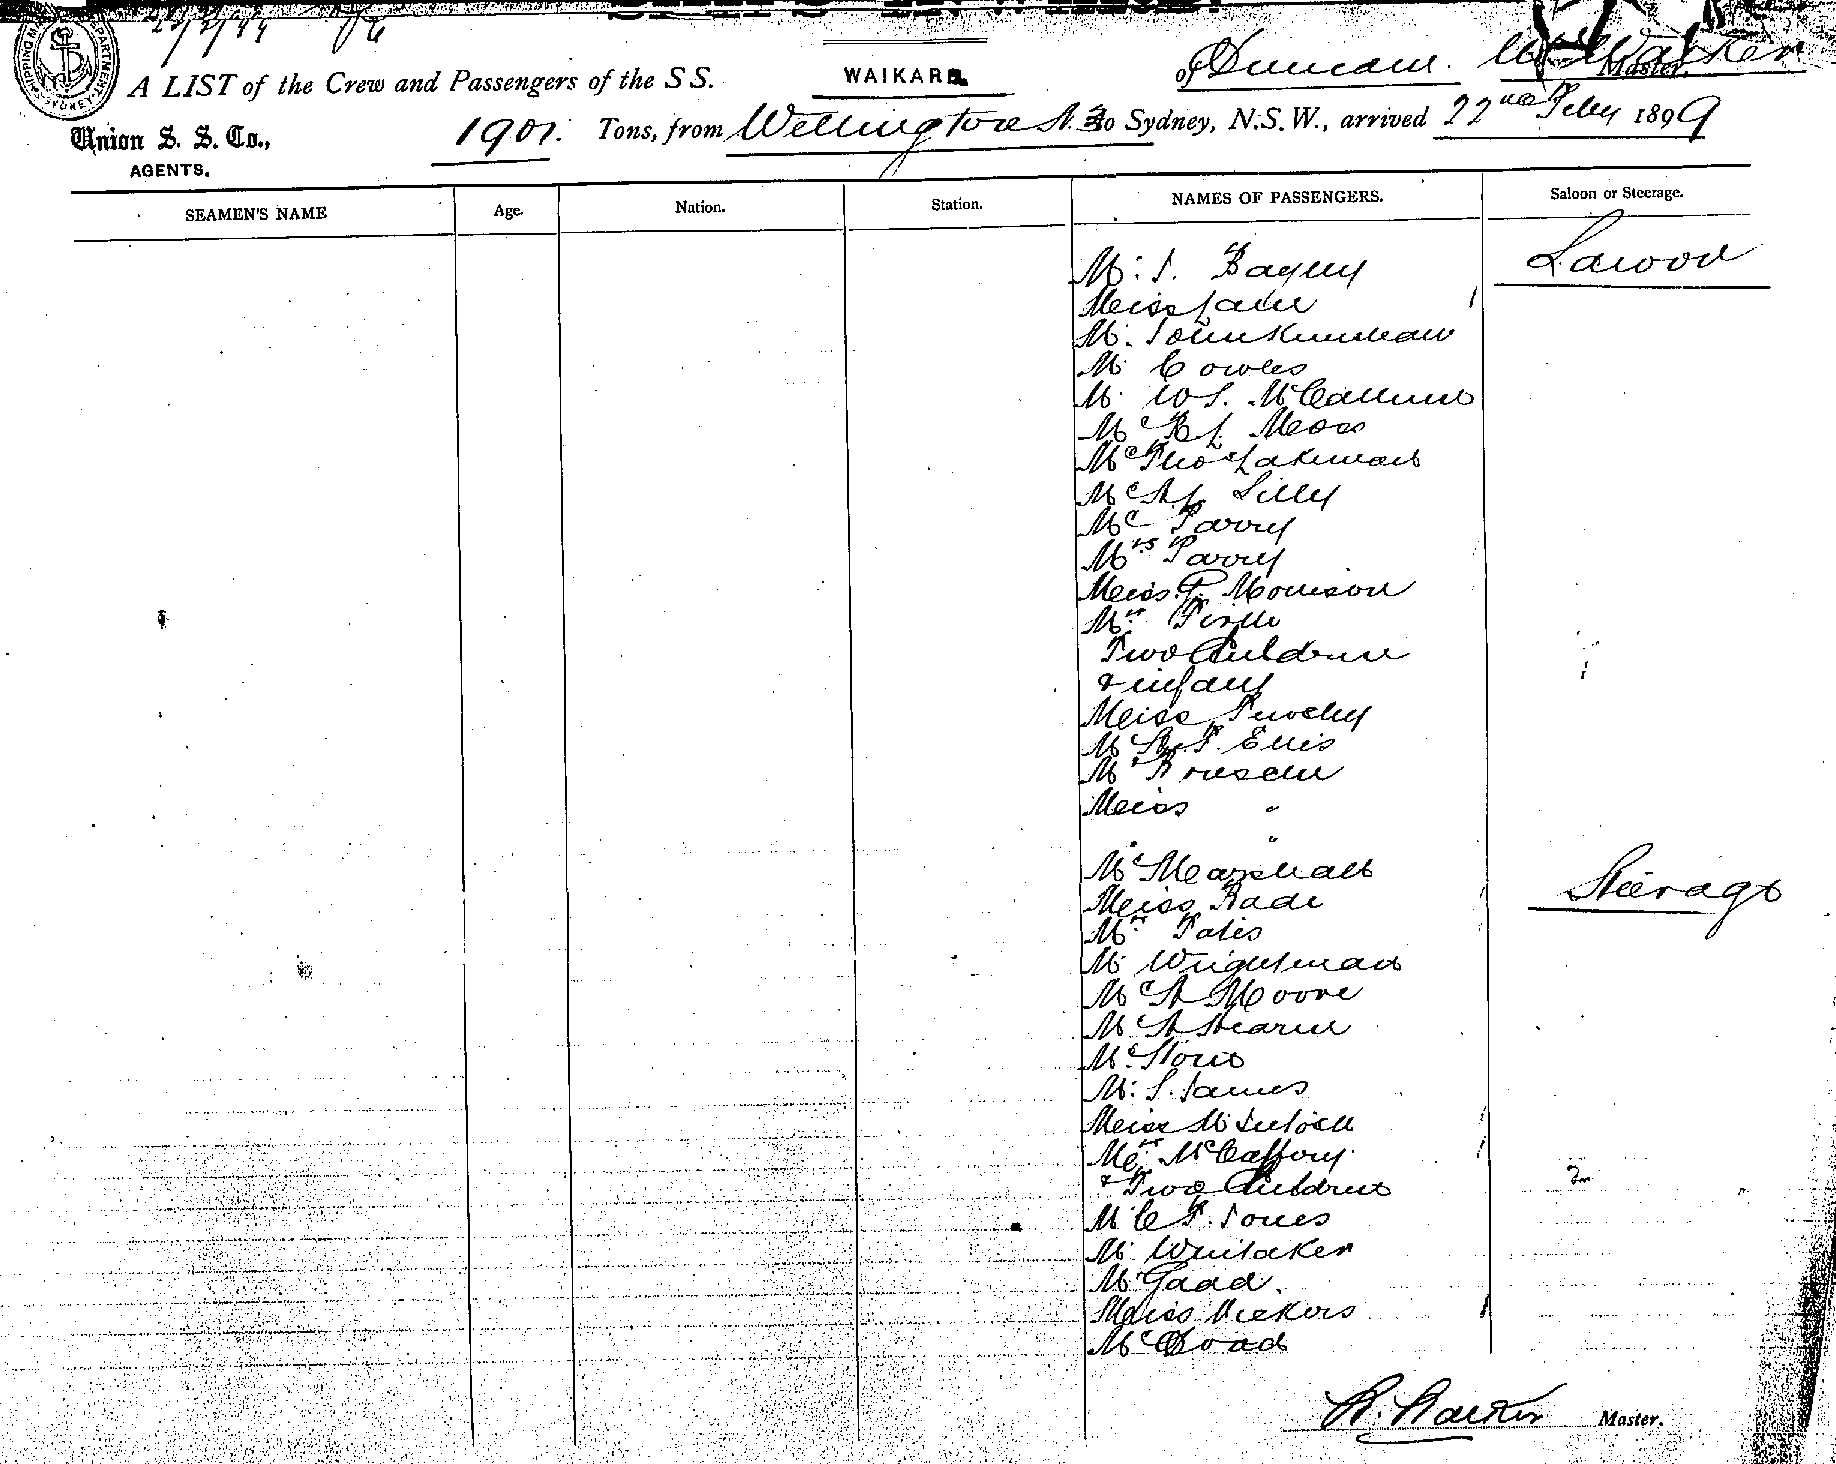 A LIST of the Crew and Passengers of the SS. WAIKARE of Dunedin. W. Barker Master.
Union S. S. Co.,
AGENTS.
1901. Tons, from Wellington N.Z. to Sydney, N.S.W., arrived 22nd Feby 1899
SEAMEN'S NAME Age. Nation. Station. NAMES OF PASSENGERS. Saloon or Steerage.
Mr J. Bagley Saloon
Miss
Mr John
Mr Cowles
Mr W J. McCallum
Mr R J. Moss
Mr Thos Lakeman
Mr A J. Lilly
Mr Parry
Mrs Parry
Miss G. Morrison
Mrs Firth
Two Children
& infant
Miss
Mr Ellis
Mr
Miss "
" "
Mr Marshall Steerage
Miss Rade
Mrs Pates
Mr Wrightman
Mr A Moore
Mr A Hearn
Mr Stone
Mr J. James
Miss McIntosh
Mrs McCaffory
& Two Children 2
Mr C F. Jones
Mr Whitaker
Mr Gadd.
Miss Vickers
Mr Goad
Master.